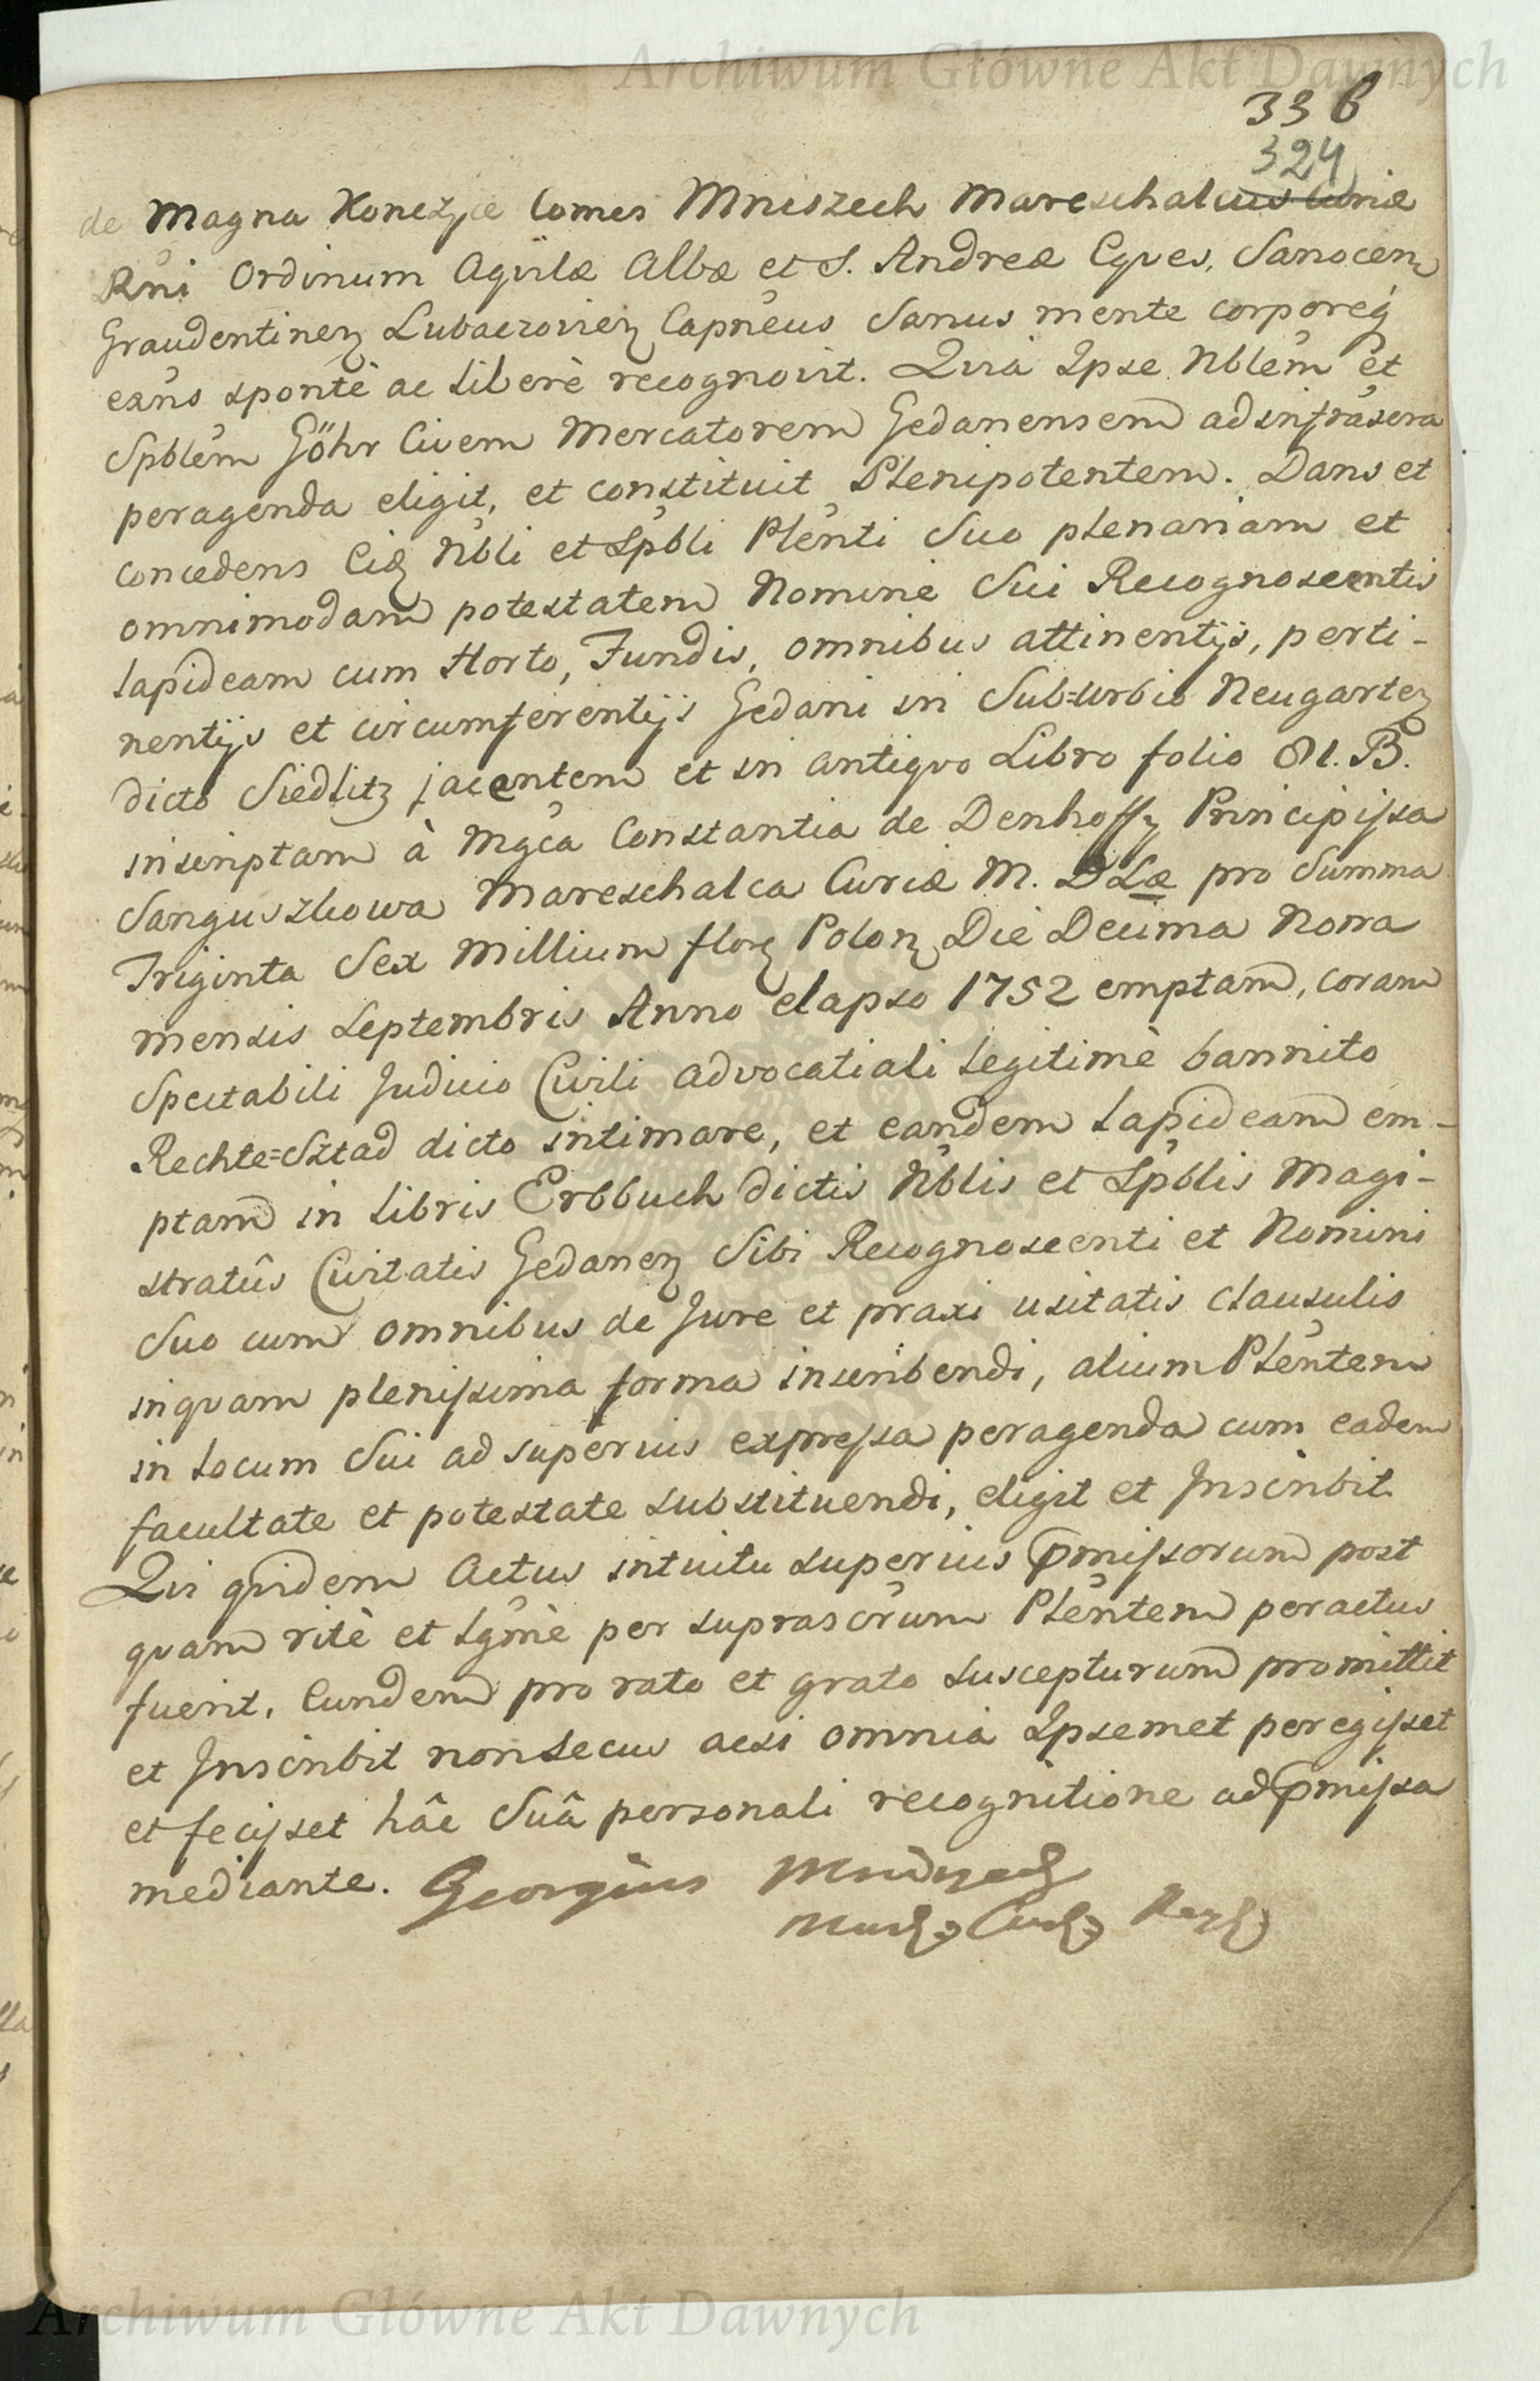 Archiwum Główne Akt Dawnych
336
324
de Magna Konczyce Comes Mniszech Mareschalcus Curiæ
Rni Ordinum Aqvilæ Albæ et S. Andreæ Eqves, Sanocen
Graudentinen Lubaczovien Capneus Sanus mente corporeq
exns sponte ac libere recognovit. Quia Ipse Nblem et
Spblem Göhr Civem Mercatorem Gedanensem ad infrascra
peragenda eligit, et constituit Plenipotentem. Dans et
concedens Eid Nbli et Spbli Plenti Suo plenariam et
omnimodam potestatem Nomine Sui Recognoscentis
lapideam cum Horto, Fundis, omnibus attinentijs, perti-
nentijs et circumferentijs Gedani in Sub=urbio Neugarten
dicto Siedlitz jacentem et in antiqvo Libro folio 81. B.
inscriptam à Mgca Constantia de Denhoff Principissa
Sanguszkowa Mareschalca Curiæ M. D Læ pro Summa
Triginta Sex Millium flor Polon Die Decima Nona
mensis Septembris Anno elapso 1752 emptam, coram
Spectabili Judicio Civili advocatiali legitimè bannito
Rechte=Sztad dicto intimare, et eandem lapideam em-
ptam in libris Erbbuch dictis Nblis et Spblis Magi-
stratûs Civitatis Gedanen Sibi Recognoscenti et Nomini
Suo cum omnibus de Jure et praxi usitatis clausulis
inqvam plenissima forma inscribendi, alium Plentem
in locum Sui ad superius expressa peragenda cum eadem
facultate et potestate substituendi, eligit et Inscribit.
Qui qvidem Actus intuitu superius pmissorum post
qvam ritè et lgmè per suprascrum Plentem peractus
fuerit, Eundem pro rato et grato suscepturum promittit
et Inscribit non secus acsi omnia Ipsemet peregisset
et fecisset hâc Suâ personali recognitione ad pmissa
mediante. Georgius Mniszech
Archiwum Główne Akt Dawnych